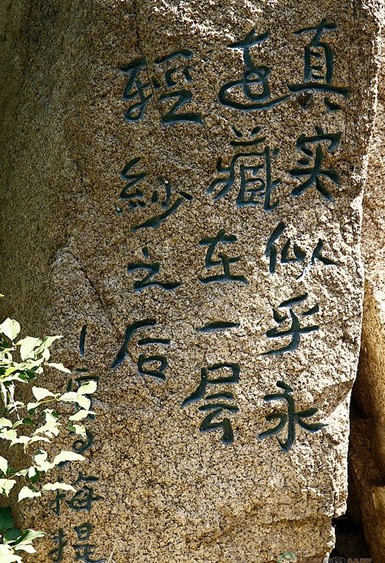 真实似乎永
远藏在一层
輕紗之后
梅提